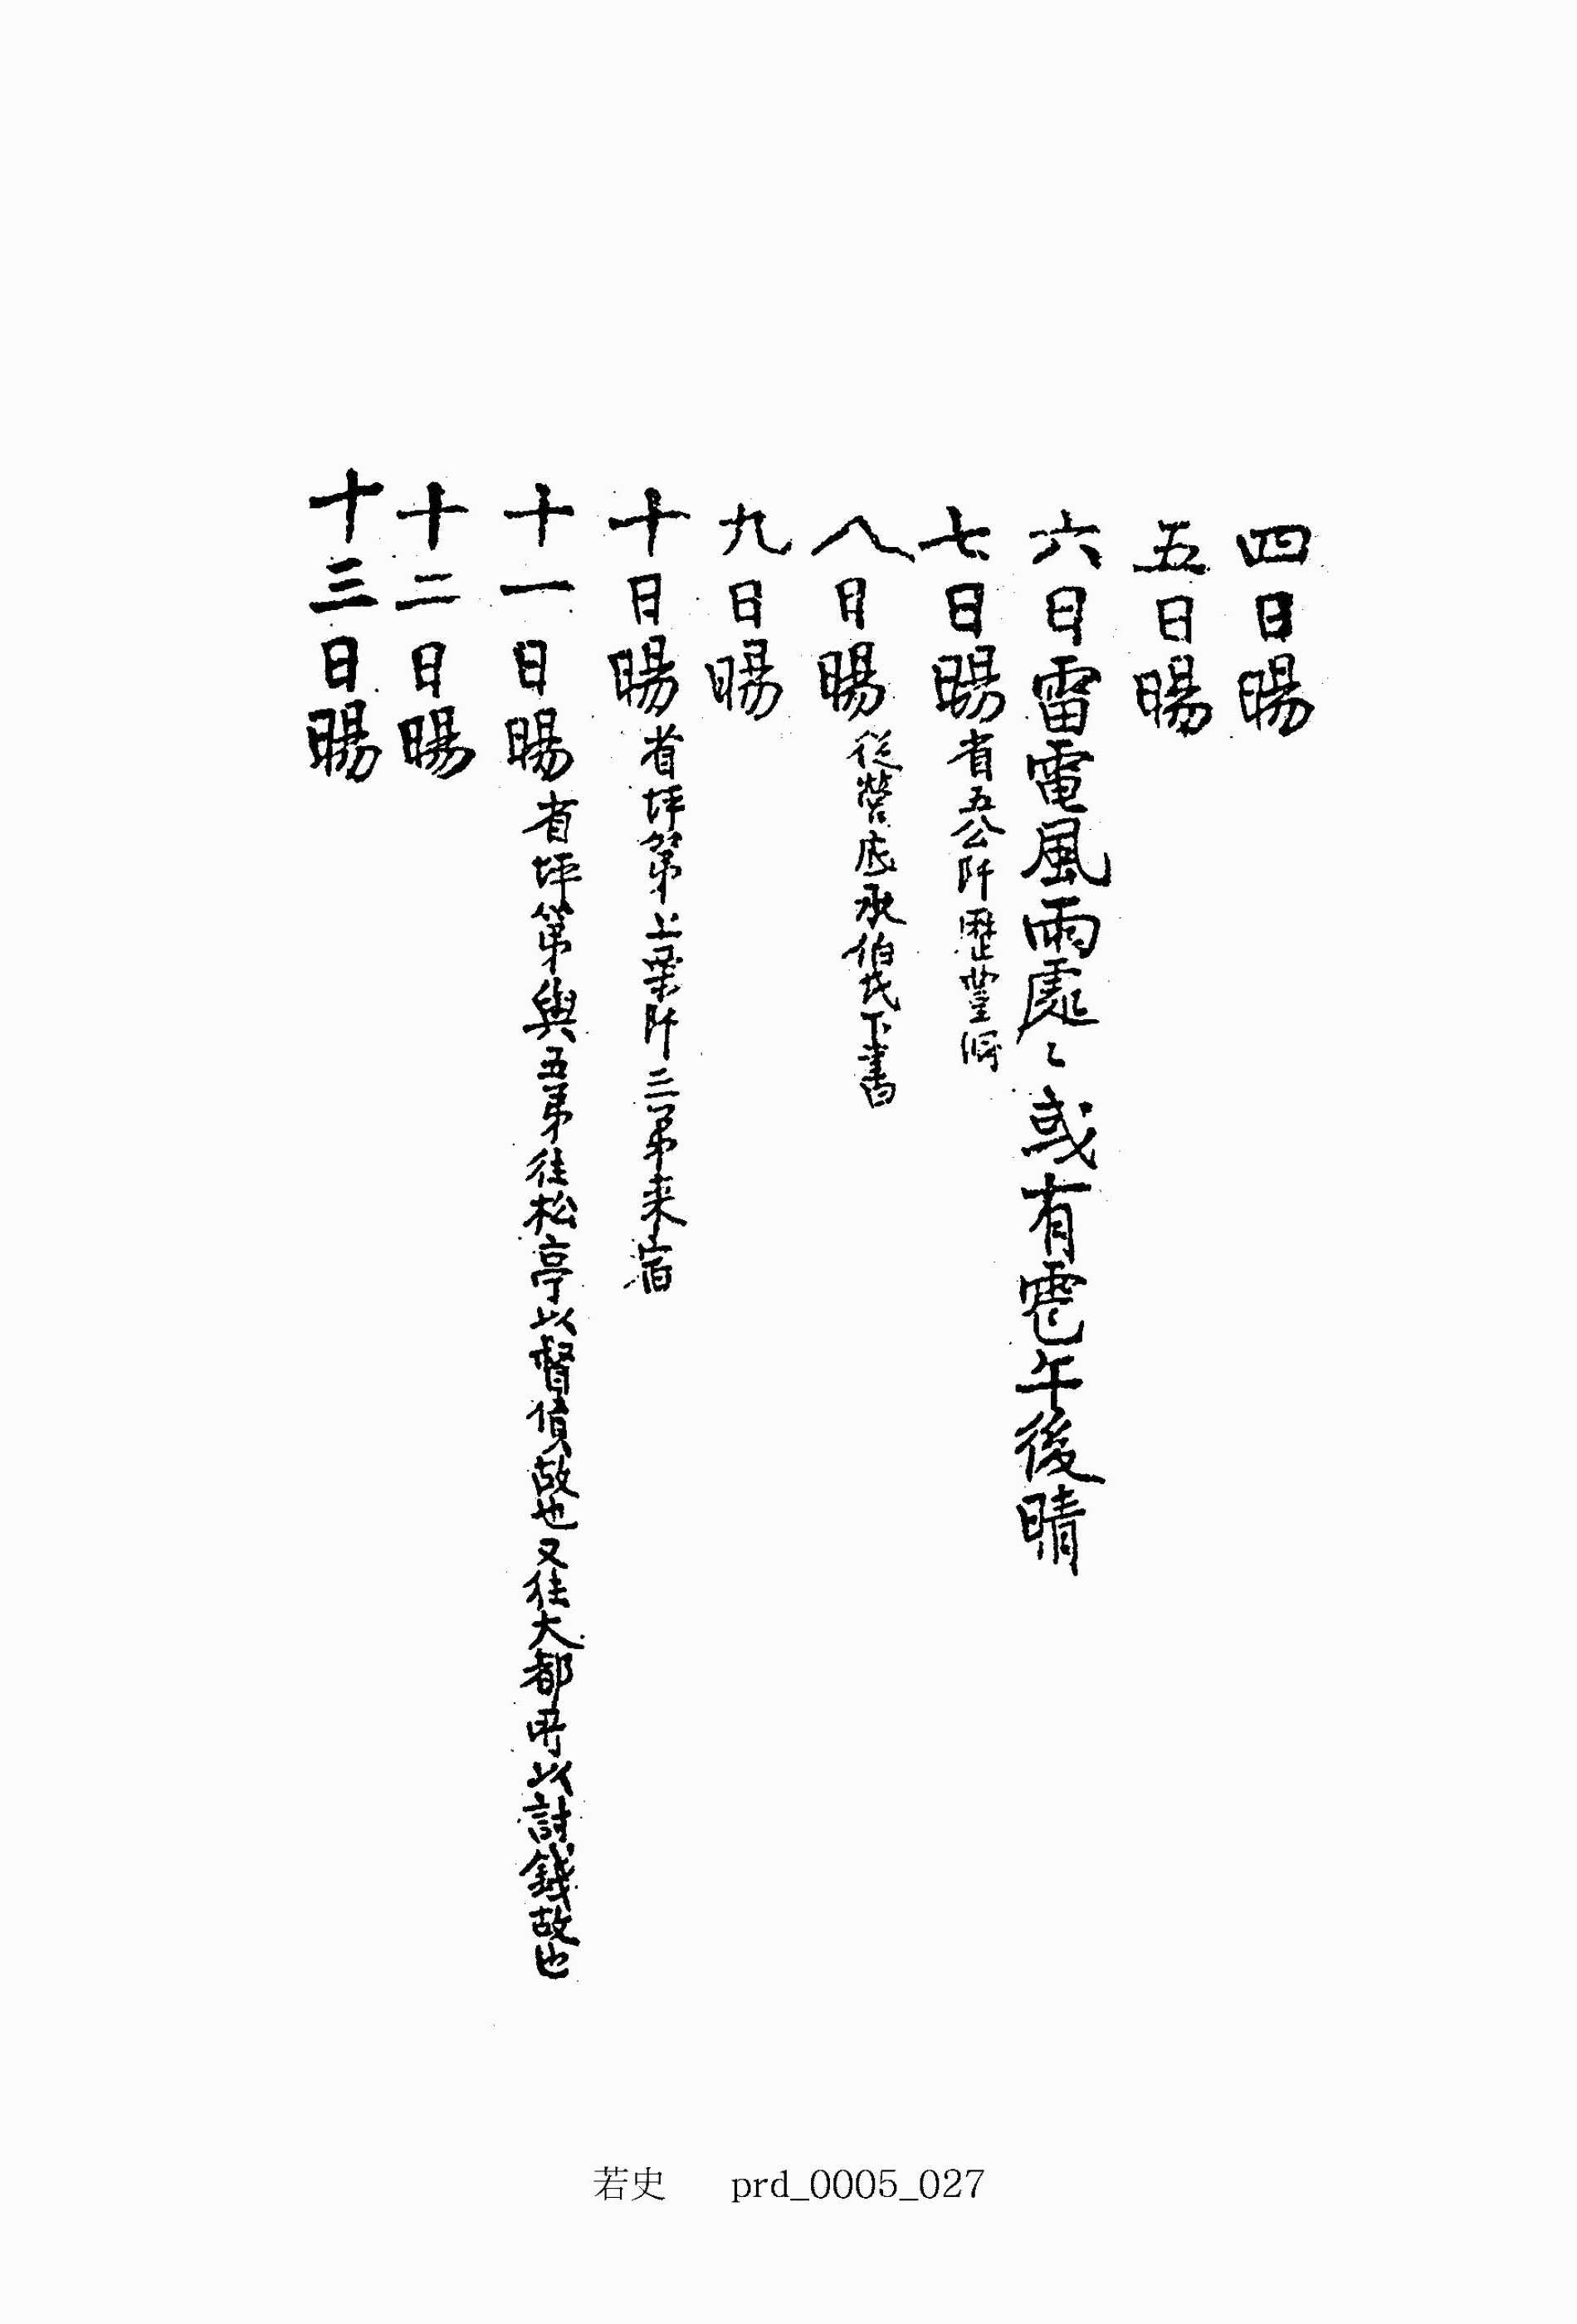 四日暘
五日暘
六日雷電風雨處〻或有雹午後晴
七日暘省五公阡歷豊
八日暘從營底承伯氏下書
九日暘
十日暘省坪第上葉阡三弟来宿
十一日暘省坪第與五弟往松亭以督債故也又往大都所以討錢故也
十二日暘
十三日暘
若史 prd_0005_027